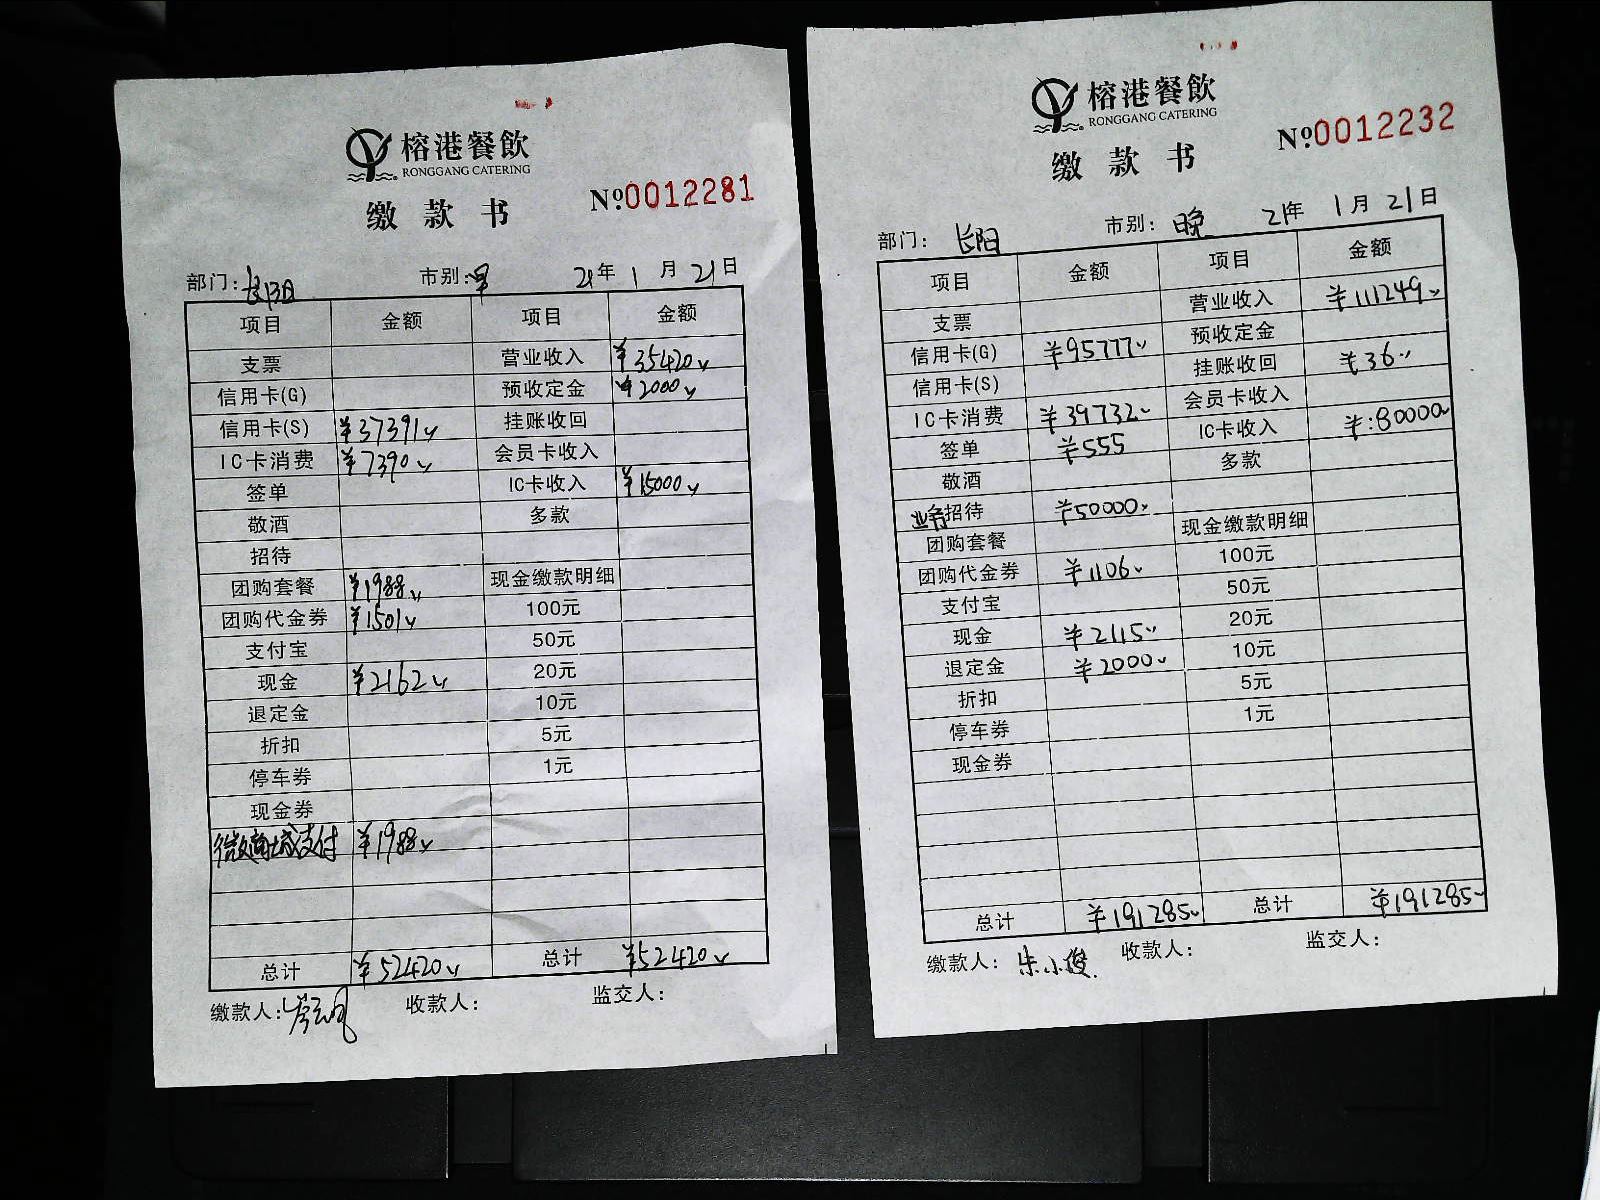 榕港餐飲
RONGGANG CATERING
缴款书
№0012281
部门:长阳 市别:早 21年1月21日
项目 金额 项目 金额
支票 营业收入 ¥35420
信用卡(G) 预收定金 ¥2000
信用卡(S) ¥37391 挂账收回
IC卡消费 ¥7390 会员卡收入
签单 IC卡收入 ¥15000
敬酒 多款
招待
团购套餐 ¥1988 现金缴款明细
团购代金券 ¥1501 100元
支付宝 50元
现金 ¥2162 20元
退定金 10元
折扣 5元
停车券 1元
现金券
微商城支付 ¥1988
总计 ¥52420 总计 ¥52420
缴款人: 收款人: 监交人:
榕港餐飲
RONGGANG CATERING
缴款书
№0012232
部门:长阳 市别:晚 21年1月21日
项目 金额 项目 金额
支票 营业收入 ¥111249
信用卡(G) ¥95777 预收定金
信用卡(S) 挂账收回 ¥36
IC卡消费 ¥39732 会员卡收入
签单 ¥555 IC卡收入 ¥:80000
敬酒 多款
业务招待 ¥50000
团购套餐 现金缴款明细
团购代金券 ¥1106 100元
支付宝 50元
现金 ¥2115 20元
退定金 ¥2000 10元
折扣 5元
停车券 1元
现金券
总计 ¥191285 总计 ¥191285
缴款人:朱小俊 收款人: 监交人: